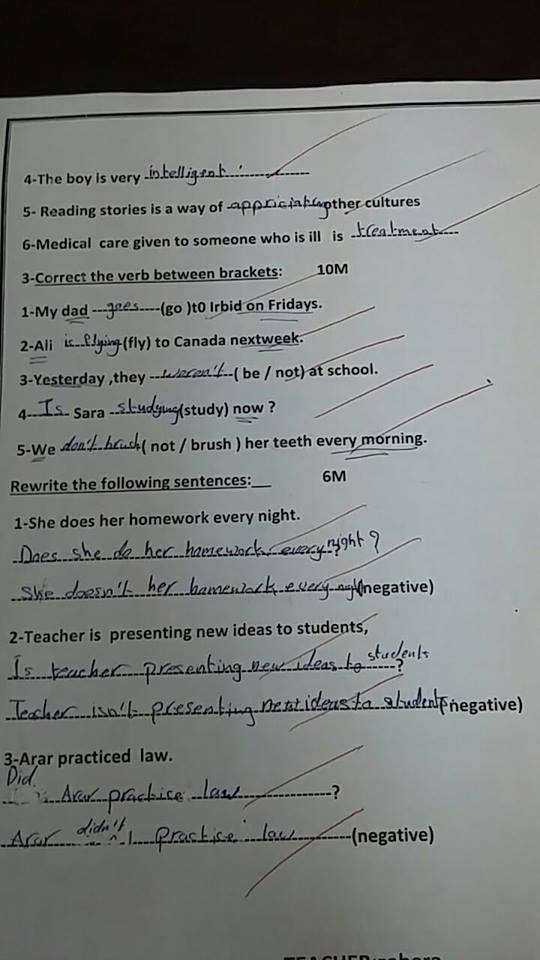 4-The boy is very intelligent
5- Reading stories is a way of appriciating other cultures
6-Medical care given to someone who is ill is treatment
3-Correct the verb between brackets: 10M
1-My dad ---goes----(go )t0 Irbid on Fridays.
2-Ali is flying(fly) to Canada nextweek.
3-Yesterday ,they ---weren't--( be / not) at school.
4--Is Sara studying(study) now ?
5-We don't brush( not / brush ) her teeth every morning.
Rewrite the following sentences:__ 6M
1-She does her homework every night.
Does she do her homework every night ?
She doesn't her homework every night(negative)
2-Teacher is presenting new ideas to students,
Is teacher presenting new ideas to students?
Teacher isn't presenting next ideas to students(negative)
3-Arar practiced law.
Did Arar practice law----------------?
Arar didn't practice law--------(negative)